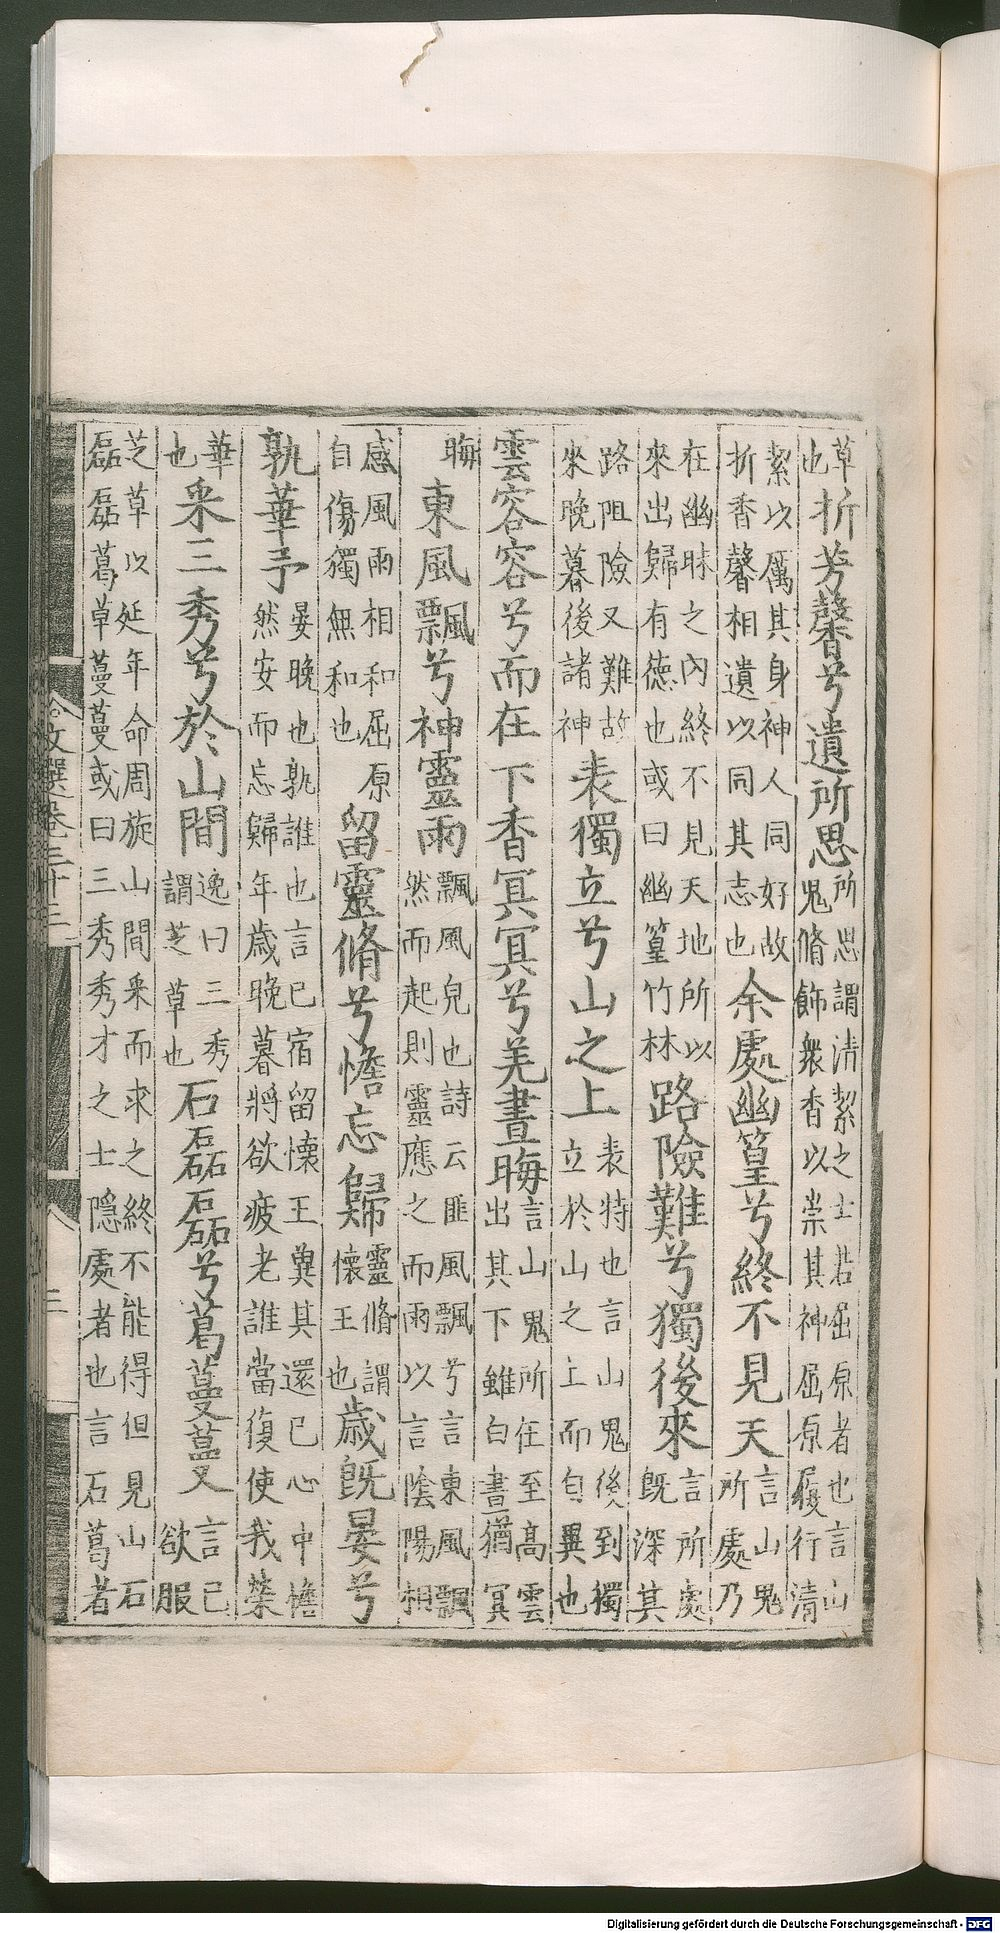 草也折芳馨兮遺所思所思謂清絜之士若屈原者也言山鬼脩飾衆香以崇其神屈原履行清
絜以厲其身神人同好故折香馨相遺以同其志也余處幽篁兮終不見天言山鬼所處乃
在幽昧之内終不見天地所以來出歸有德也或曰幽篁竹林路險難兮獨後來言所處既深其
路阻險又難故來晚暮後諸神表獨立兮山之上表特也言山鬼後到獨立於山之上而自異也
雲容容兮而在下香冥冥兮羌晝晦言山鬼所在至高雲出其下雖白晝猶冥
晦東風飄兮神靈雨飄風皃也詩云匪風飄兮言東風飄然而起則靈應之而雨以言陰陽相
感風雨相和屈原自傷獨無和也留靈脩兮憺忘歸靈脩謂懷王也歲既晏兮
孰華予晏晚也孰誰也言己宿留懷王冀其還己心中憺然安而忘歸年歲晚暮將欲疲老誰當復使我榮
華也采三秀兮於山間逸曰三秀謂芝草也石磊磊兮葛蔓蔓言己欲服
芝草以延年命周旋山間采而求之終不能得但見山石磊磊葛草蔓蔓或曰三秀秀才之士隱處者也言石葛者
文選卷三十三
二
Digitalisierung gefördert durch die Deutsche Forschungsgemeinschaft - DFG